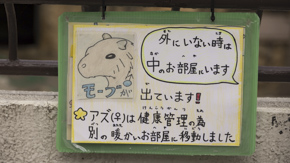 外にいない時は
中のお部屋にいます
モープが
出ています!!
アズ(♀)は健康管理の為
けんこうかんり ため
別の暖かいお部屋に移動しました